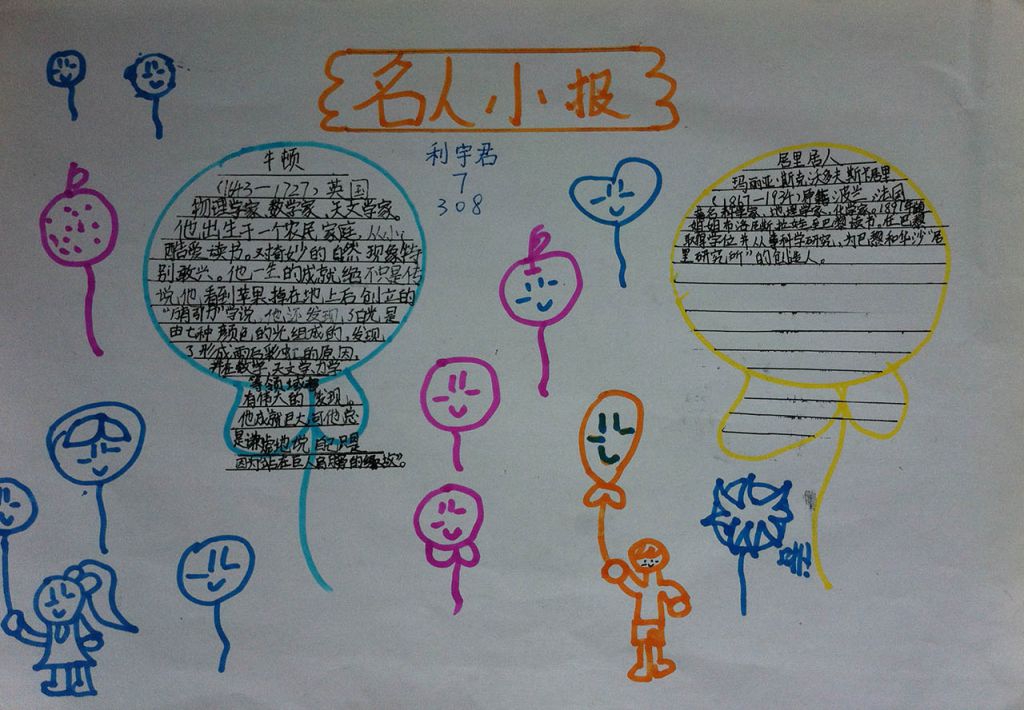 名人小报
利宇君
7
308
牛顿
(1643—1727)英国
物理学家、数学家、天文学家。
他出生于一个农民家庭,从小
酷爱读书。对奇妙的自然现象特
别敢兴。他一生的成就绝不只是传
说他看到苹果掉在地上后创立的
学说,他还发现了白光是
由七种颜色的光组成的,发现
了形成雨后彩虹的原因,
并在数学、天文学、力学
等领域都
有伟大的发现。
他成就巨大可他总
是谦虚地说自己只是
因为站在巨人肩膀的缘故”。
居里居人
玛丽亚·斯克沃多夫斯卡居里
(1867—1934)原籍波兰,法国
著名科学家、地理学家、化学家。1891年随
姐姐布洛尼斯拉娃至巴黎读书,在巴黎
取得学位并从事科学研究、为巴黎和华沙“居
里研究所”的创造人。